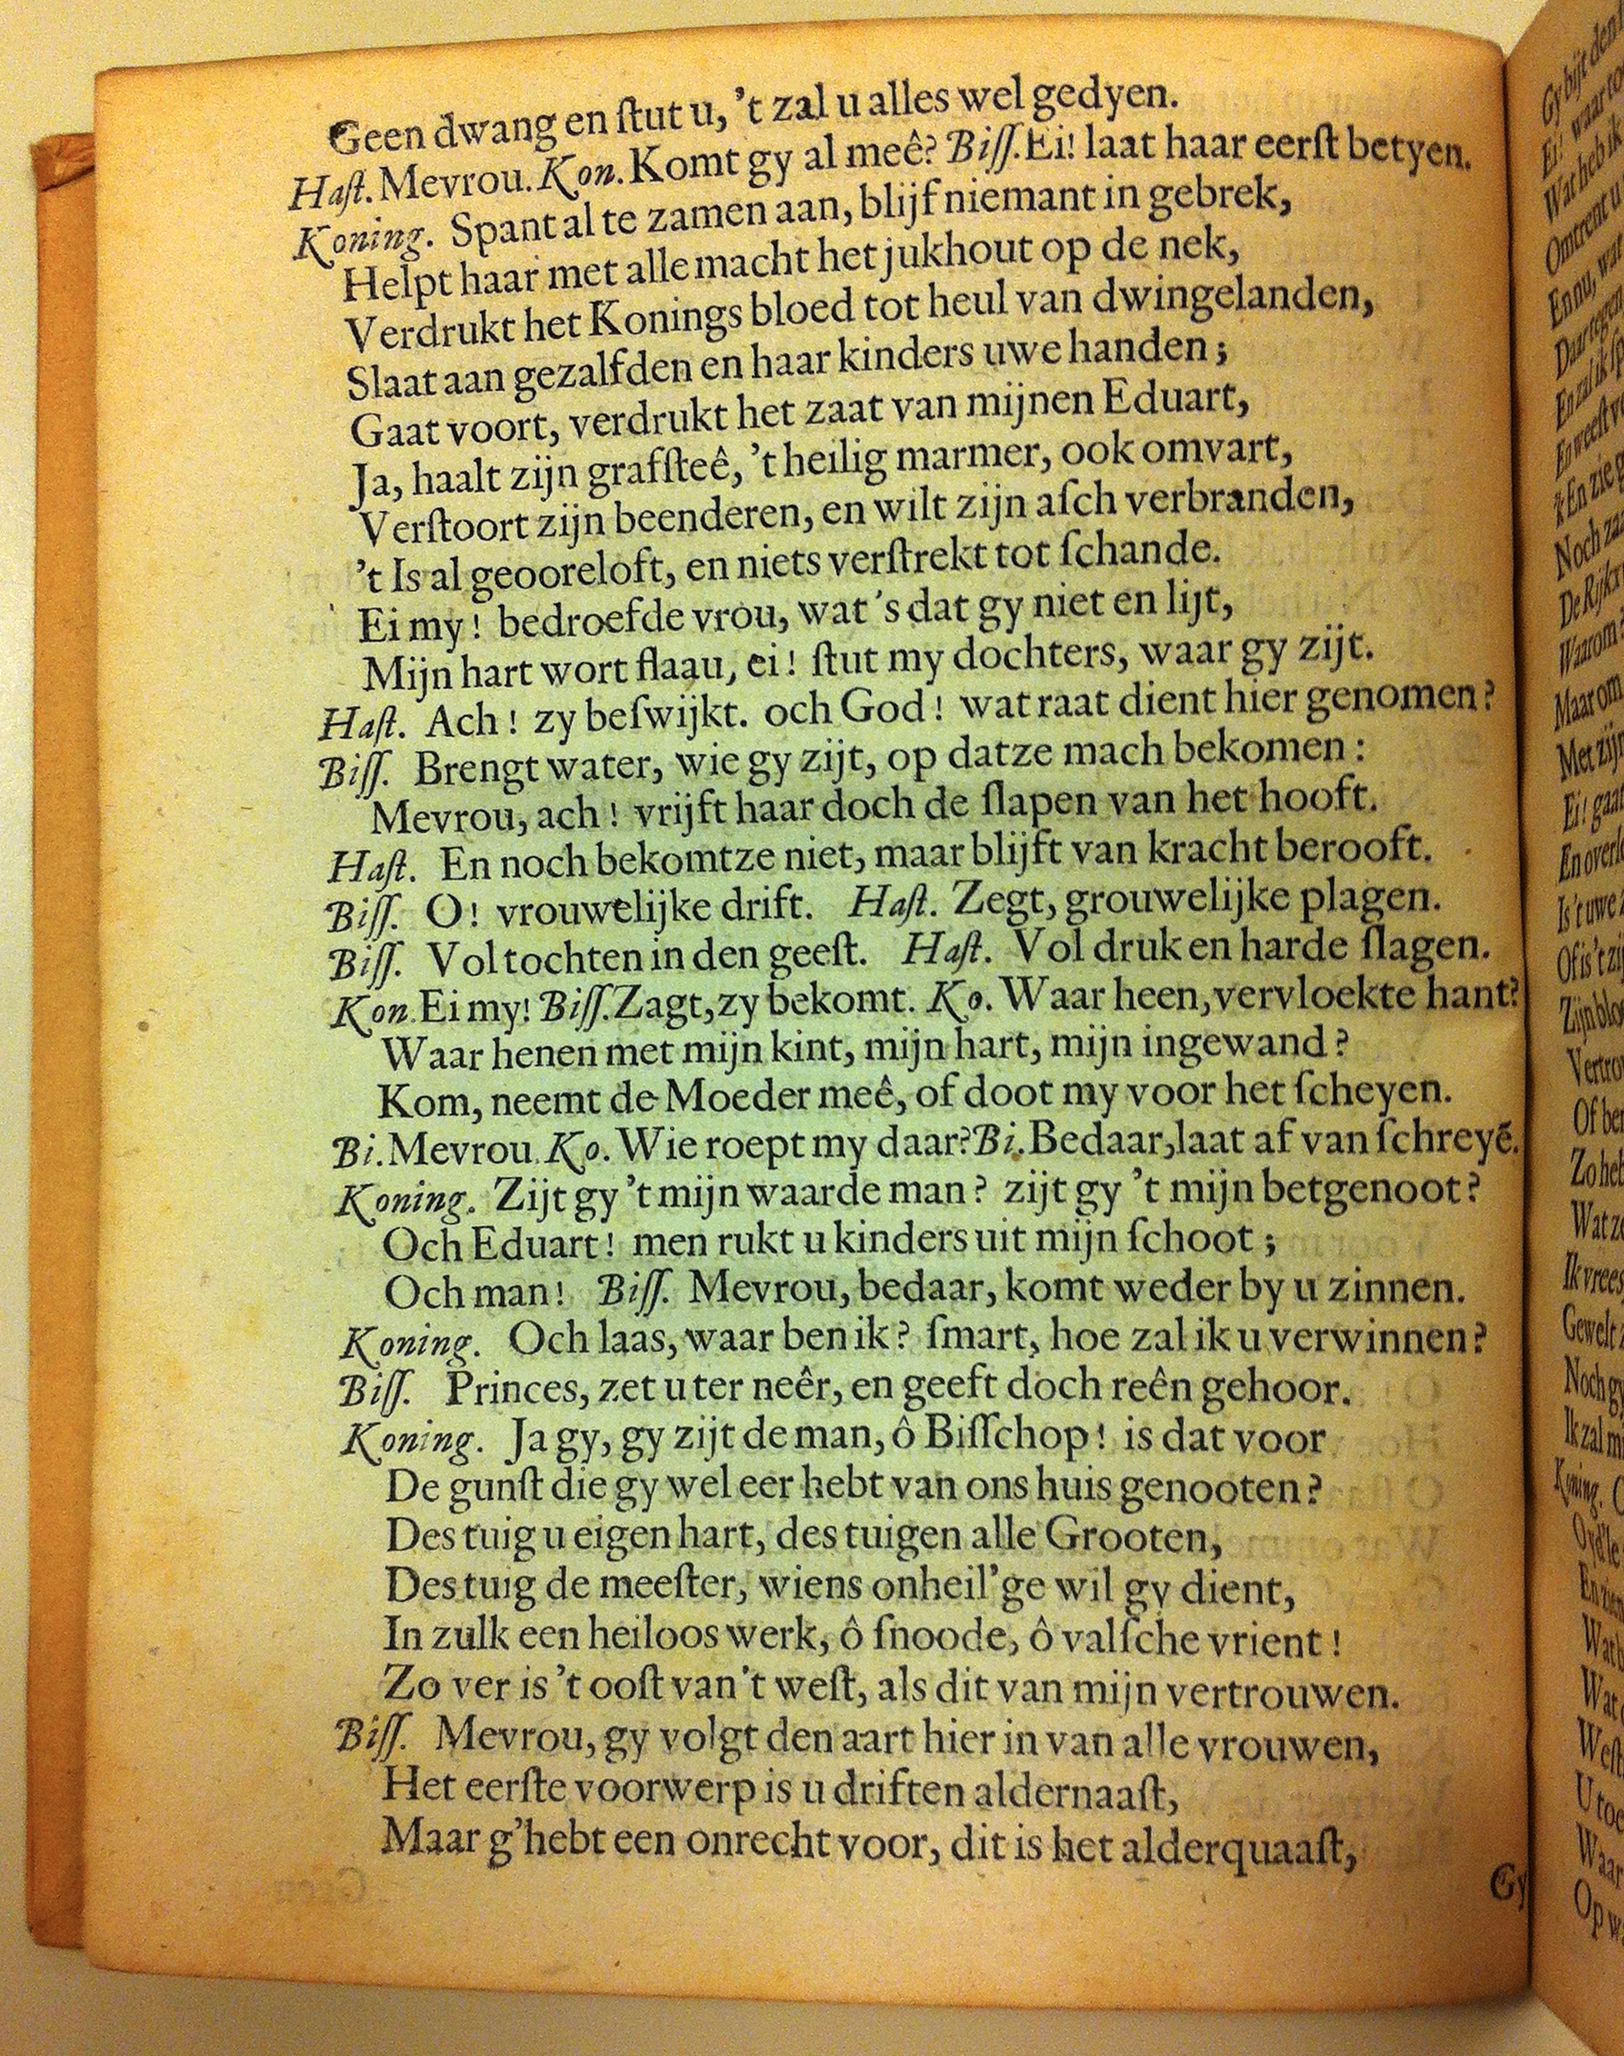 Geen dwang en ſtut u, 't zal u alles wel gedyen.
Haſt. Mevrou. Kon. Komt gy al meê? Biſſ. Ei! laat haar eerſt betyen.
Koning. Spant al te zamen aan, blijf niemant in gebrek,
Helpt haar met alle macht het jukhout op de nek,
Verdrukt het Konings bloed tot heul van dwingelanden,
Slaat aan gezalfden en haar kinders uwe handen;
Gaat voort, verdrukt het zaat van mijnen Eduart,
Ja, haalt zijn grafſteê, 't heilig marmer, ook omvart,
Verſtoort zijn beenderen, en wilt zijn aſch verbranden,
't Is al geooreloft, en niets verſtrekt tot ſchande.
Ei my! bedroefde vrou, wat 's dat gy niet en lijt,
Mijn hart wort flaau, ei! ſtut my dochters, waar gy zijt.
Haſt. Ach! zy beſwijkt. och God! wat raat dient hier genomen?
Biſſ. Brengt water, wie gy zijt, op datze mach bekomen:
Mevrou, ach! vrijft haar doch de ſlapen van het hooft.
Haſt. En noch bekomtze niet, maar blijft van kracht berooft.
Biſſ. O! vrouwelijke drift. Haſt. Zegt, grouwelijke plagen.
Biſſ. Vol tochten in den geeſt. Haſt. Vol druk en harde ſlagen.
Kon. Ei my! Biſſ. Zagt, zy bekomt. Ko. Waar heen, vervloekte hant?
Waar henen met mijn kint, mijn hart, mijn ingewand?
Kom, neemt de Moeder meê, of doot my voor het ſcheyen.
Bi. Mevrou. Ko. Wie roept my daar? Bi. Bedaar, laat af van ſchreyē.
Koning. Zijt gy 't mijn waarde man? zijt gy 't mijn betgenoot?
Och Eduart! men rukt u kinders uit mijn ſchoot;
Och man! Biſſ. Mevrou, bedaar, komt weder by u zinnen.
Koning. Och laas, waar ben ik? ſmart, hoe zal ik u verwinnen?
Biſſ. Princes, zet u ter neêr, en geeft doch reên gehoor.
Koning. Ja gy, gy zijt de man, ô Biſſchop! is dat voor
De gunſt die gy wel eer hebt van ons huis genooten?
Des tuig u eigen hart, des tuigen alle Grooten,
Des tuig de meeſter, wiens onheil'ge wil gy dient,
In zulk een heiloos werk, ô ſnoode, ô valſche vrient!
Zo ver is 't ooſt van 't weſt, als dit van mijn vertrouwen.
Biſſ. Mevrou, gy volgt den aart hier in van alle vrouwen,
Het eerſte voorwerp is u driften aldernaaſt,
Maar g'hebt een onrecht voor, dit is het alderquaaſt,
Gy